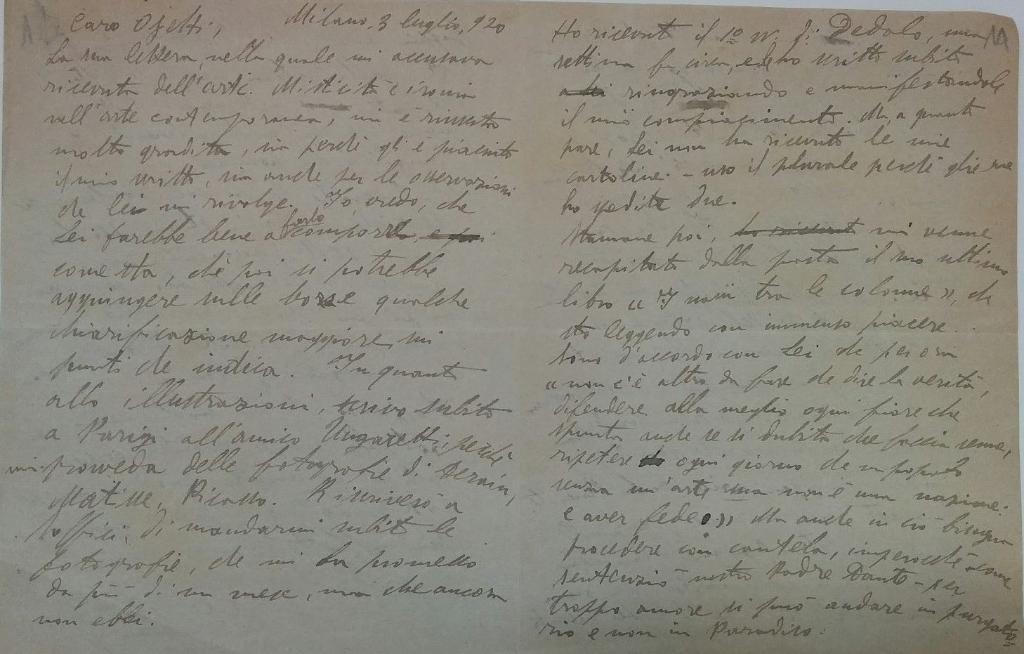 Milano, 3 luglio, 920
Caro Ojetti,
La sua lettera, nella quale mi accusava
ricevuta dell'artic. Misticità e ironia
nell'arte contemporanea, mi è riuscita
molto gradita, sia perché gli è piaciuto
il mio scritto, sia anche per le osservazioni
che lei mi rivolge. Io credo, che
Lei farebbe bene a farlo comporre, e poi
corretta, chè poi si potrebbe
aggiungere sulle bozze qualche
chiarificazione maggiore sui
punti che indica. In quanto
allo illustrazioni, scrivo subito
a Parigi all'amico Ungaretti, perché
mi provveda delle fotografie di Derain,
Matisse, Picasso. Riscriverò a
Soffici, di mandarmi subito le
fotografie, che mi ha promesso
da più di un mese, ma che ancora
non ebbi.
Ho ricevuto il 1º n. di Dedalo, una
settimana fa circa, ed ho scritto subito
ringraziando e manifestandole
il mio compiacimento. Ma, a quanto
pare, Lei non ha ricevuto le mie
cartoline - uso il plurale perché gliene
ho spedite due.
Stamane poi, ho ricevuto mi venne
recapitato dalla posta il suo ultimo
libro « I nani tra le colonne », che
sto leggendo con immenso piacere.
Sono d'accordo con Lei che per ora
« non c'è altro da fare che dire la verità,
difendere alla meglio ogni fiore che
spunta anche se si dubita che faccia seme,
ripetere ogni giorno che un popolo
senza un'arte sua non è una nazione:
e aver fede.» Ma anche in ciò bisogna
procedere con cautela, imperocché - come
sentenziò nostro Padre Dante - per
troppo amore si può andare in purgato=
rio e non in Paradiso.